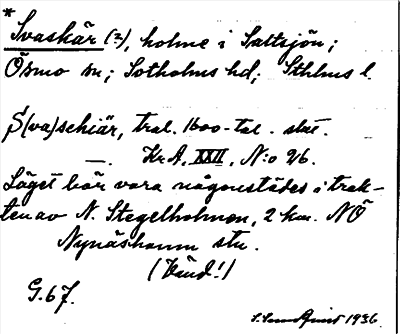 * Svaskär (?), holme i Saltsjön;
Ösmo sn; Sotholms hd; Sthlms l.
S(va)schiär, trol. 1600-tal. slut.
—. Kr A, XXII, N:o 96.
Läget bör vara någonstädes i trak-
ten av N. Stegelholmen, 2 km. NÖ
Nynäshamn stn.
(Vänd!)
G. 67.
1936